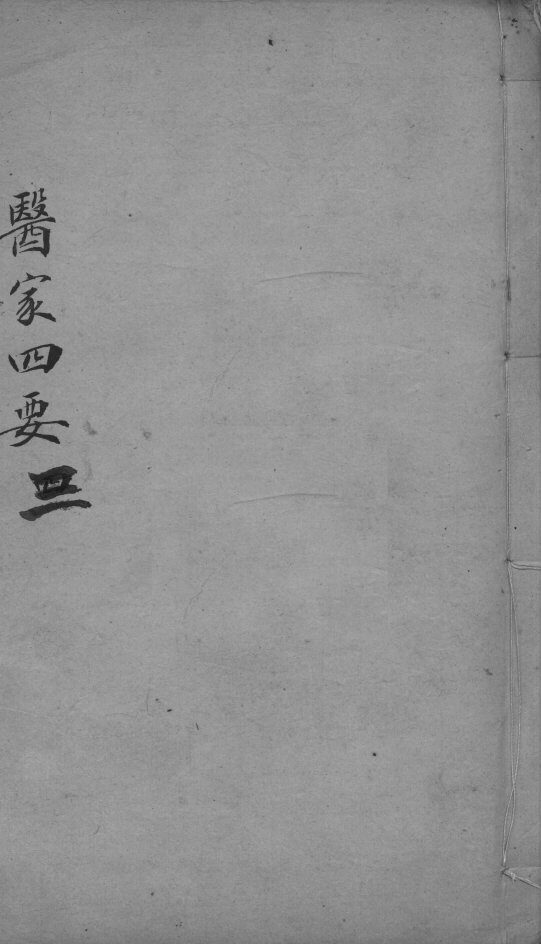 醫家四要三